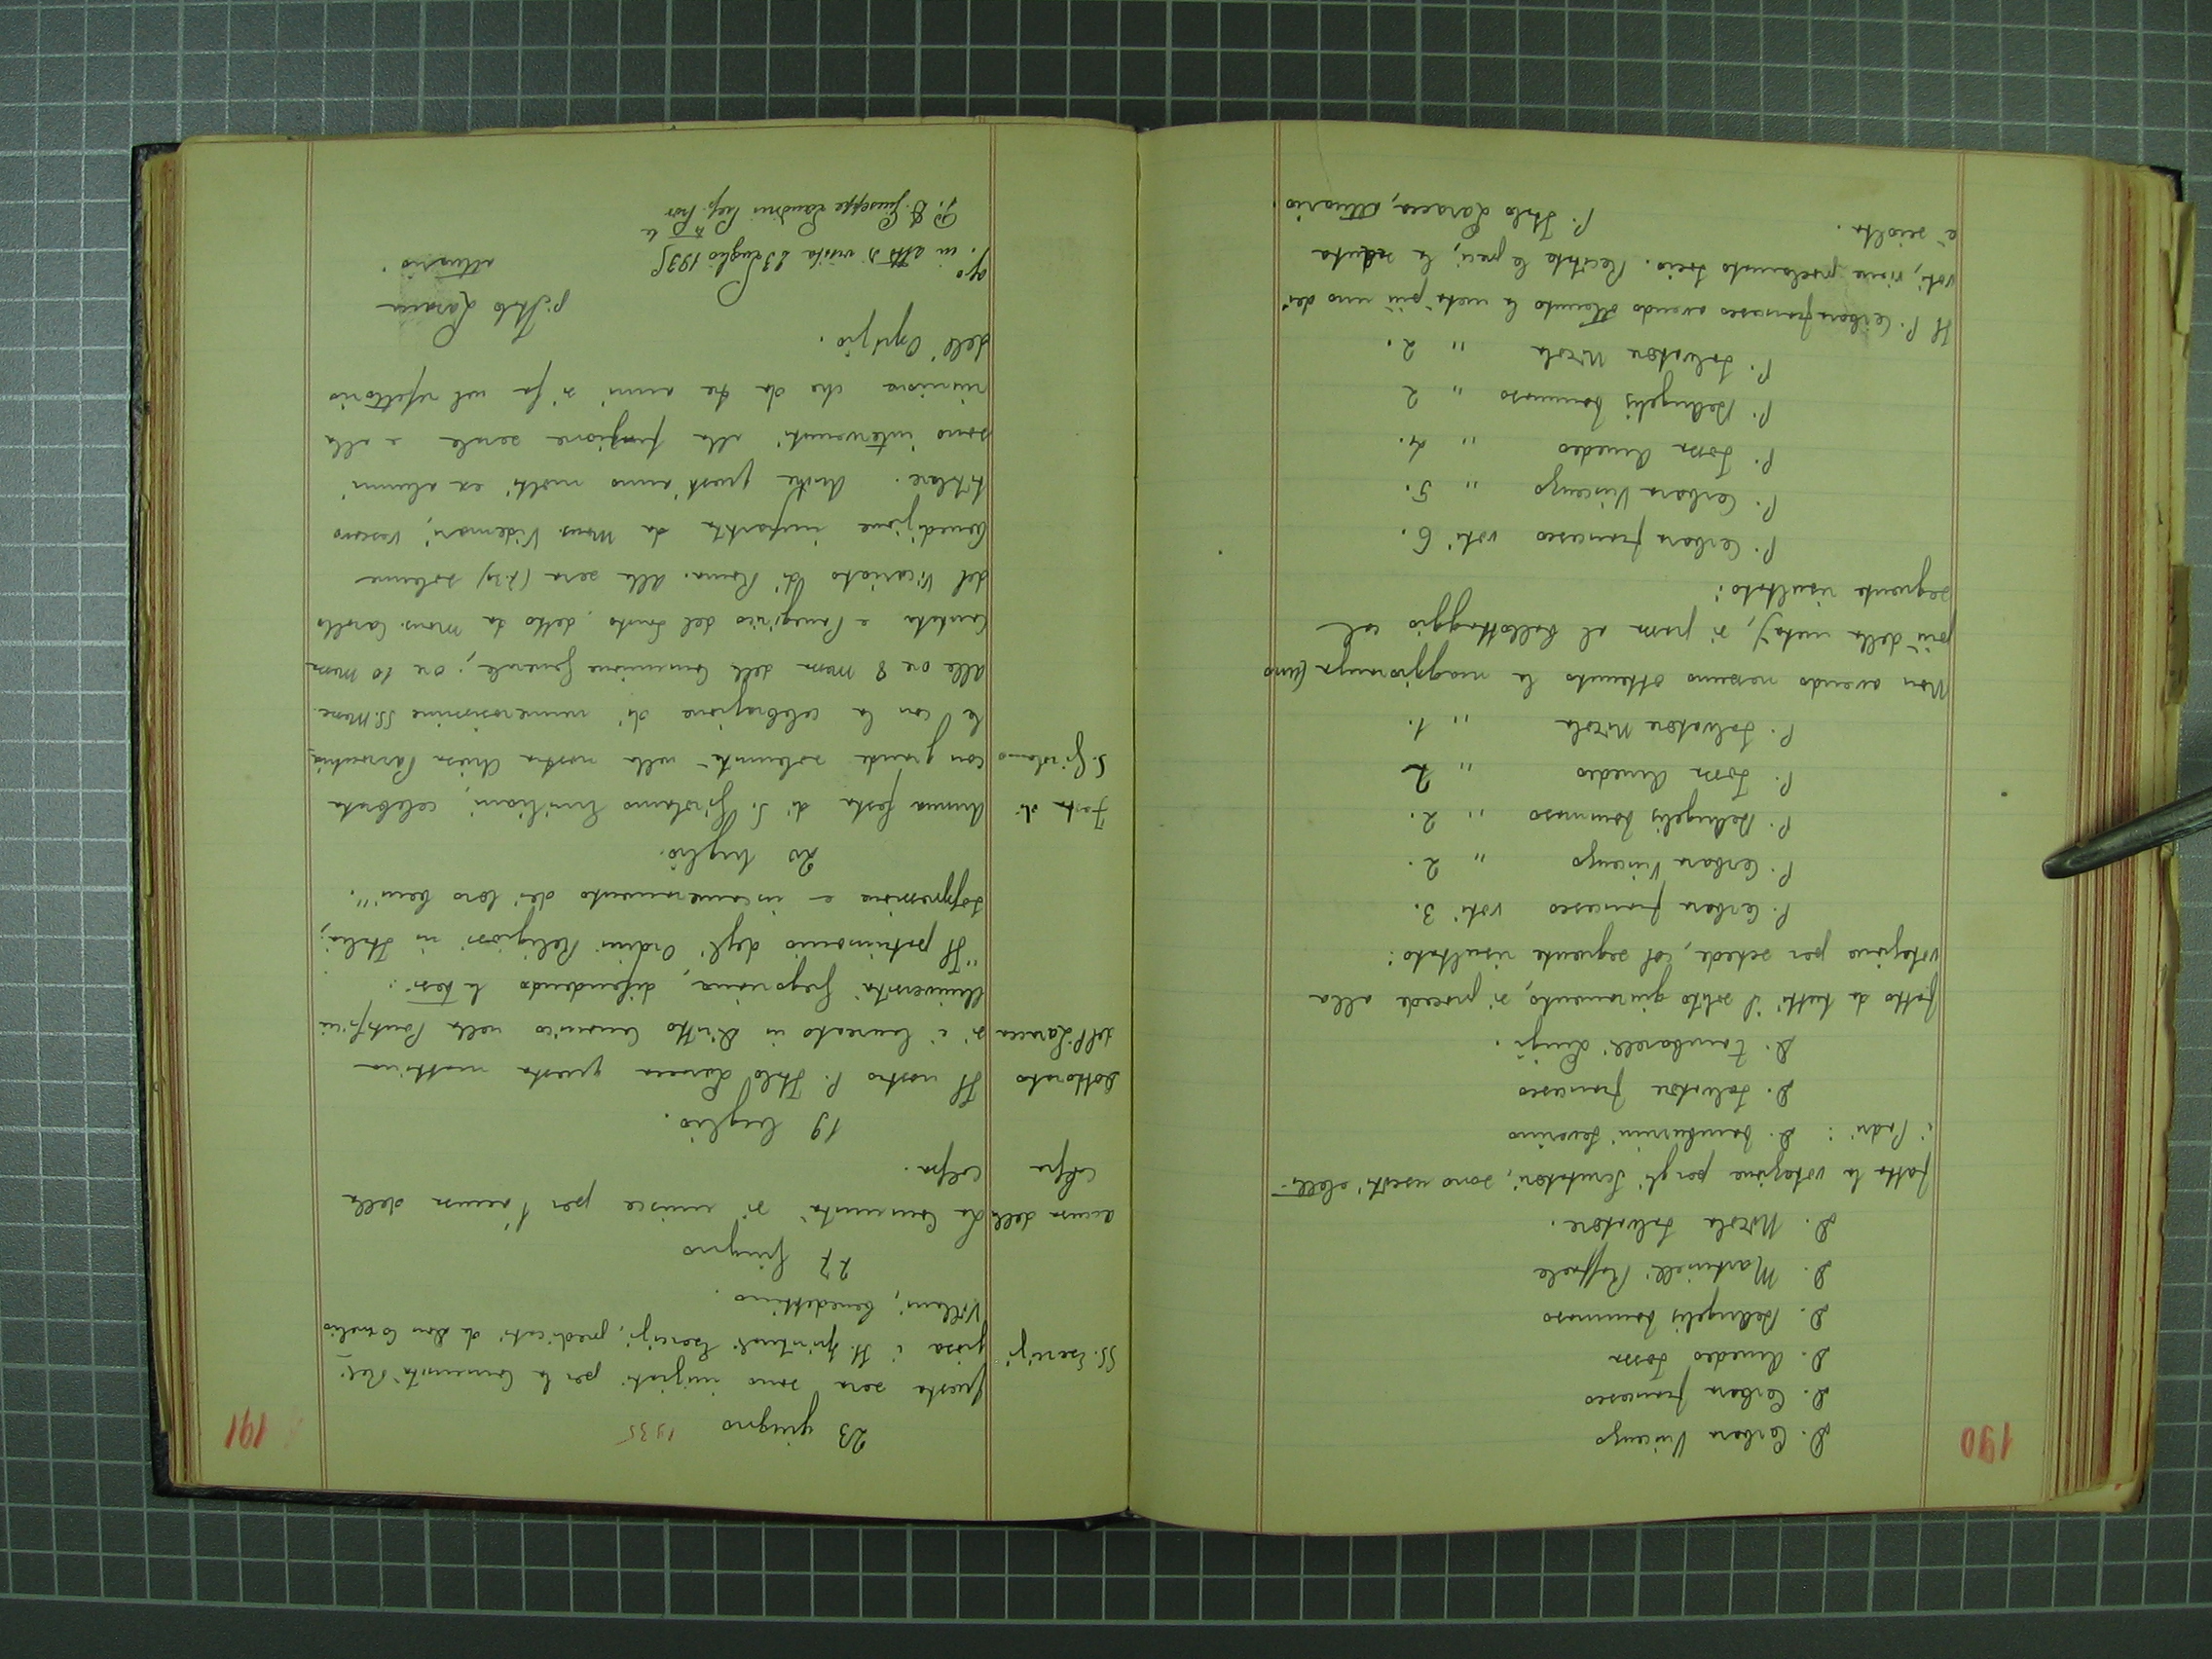 190
D. Cerbara Vincenzo
D. Cerbara Francesco
D. Amedeo Fossa
D. DeAngelis Tommaso
D. Martinelli Raffaele
D. Nicola Salvatore.
Fatta la votazione per gli Scrutatori, sono usciti eletti
i Padri: D. Tamburrini Severino
D. Salvatore Francesco
D. Zambarelli Luigi.
Fatto da tutti il solito giuramento, si procede alla
votazione per schede, col seguente risultato:
P. Cerbara Francesco voti 3.
P. Cerbara Vincenzo " 2.
P. DeAngelis Tommaso " 2.
P. Fossa Amedeo " 2
P. Salvatore Nicola " 1.
Non avendo nessuno ottenuto la maggioranza (uno
più della metà), si passa al ballottaggio col
seguente risultato:
P. Cerbara Francesco voti 6.
P. Cerbara Vincenzo " 5.
P. Fossa Amedeo " 4.
P. DeAngelis Tommaso " 2
P. Salvatore Nicola " 2.
Il P. Cerbara Francesco avendo ottenuto la metà più uno dei
voti, viene proclamato socio. Recitate le preci, la seduta
è sciolta.
P. Italo Laracca, attuario.
191
23 giugno 1935
SS. Esercizi
Questa sera sono iniziati per la Comunità Reli-
giosa i SS. Spirituali Esercizi, predicati da Don Cornelio
Villani, benedettino.
27 Giugno
accusa della
colpa
La Comunità si unisce per l'accusa della
colpa.
19 luglio.
Dottorato
del P. Laracca
Il nostro P. Italo Laracca questa mattina
si è laureato in Diritto Canonico nella Pontificia
Università Gregoriana, difendendo la tesi:
"Il patrimonio degli Ordini Religiosi in Italia;
soppressione e incameramento dei loro beni".
20 luglio.
Festa di
S. Girolamo
Annua festa di S. Girolamo Emiliani, celebrata
con grande solennità nella nostra Chiesa Parrocchia-
le con la celebrazione di numerosissime SS. Messe.
alle ore 8 messa della Comunione Generale; ore 10 messa
Cantata e Panegirico del Santo, detto da Mons. Carollo
del Vicariato di Roma. Alla sera solenne
benedizione impartita da Mons. Videmari, Vescovo
titolare. Anche quest'anno molti ex alunni
sono intervenuti alla funzione serale e alla
riunione che da tre anni si fa nel refettorio
dell'Ospizio.
P. Italo Laracca
attuario.
V. in atto di visita 23 luglio 1935
P. D. Giuseppe Landini Prep. Prov.